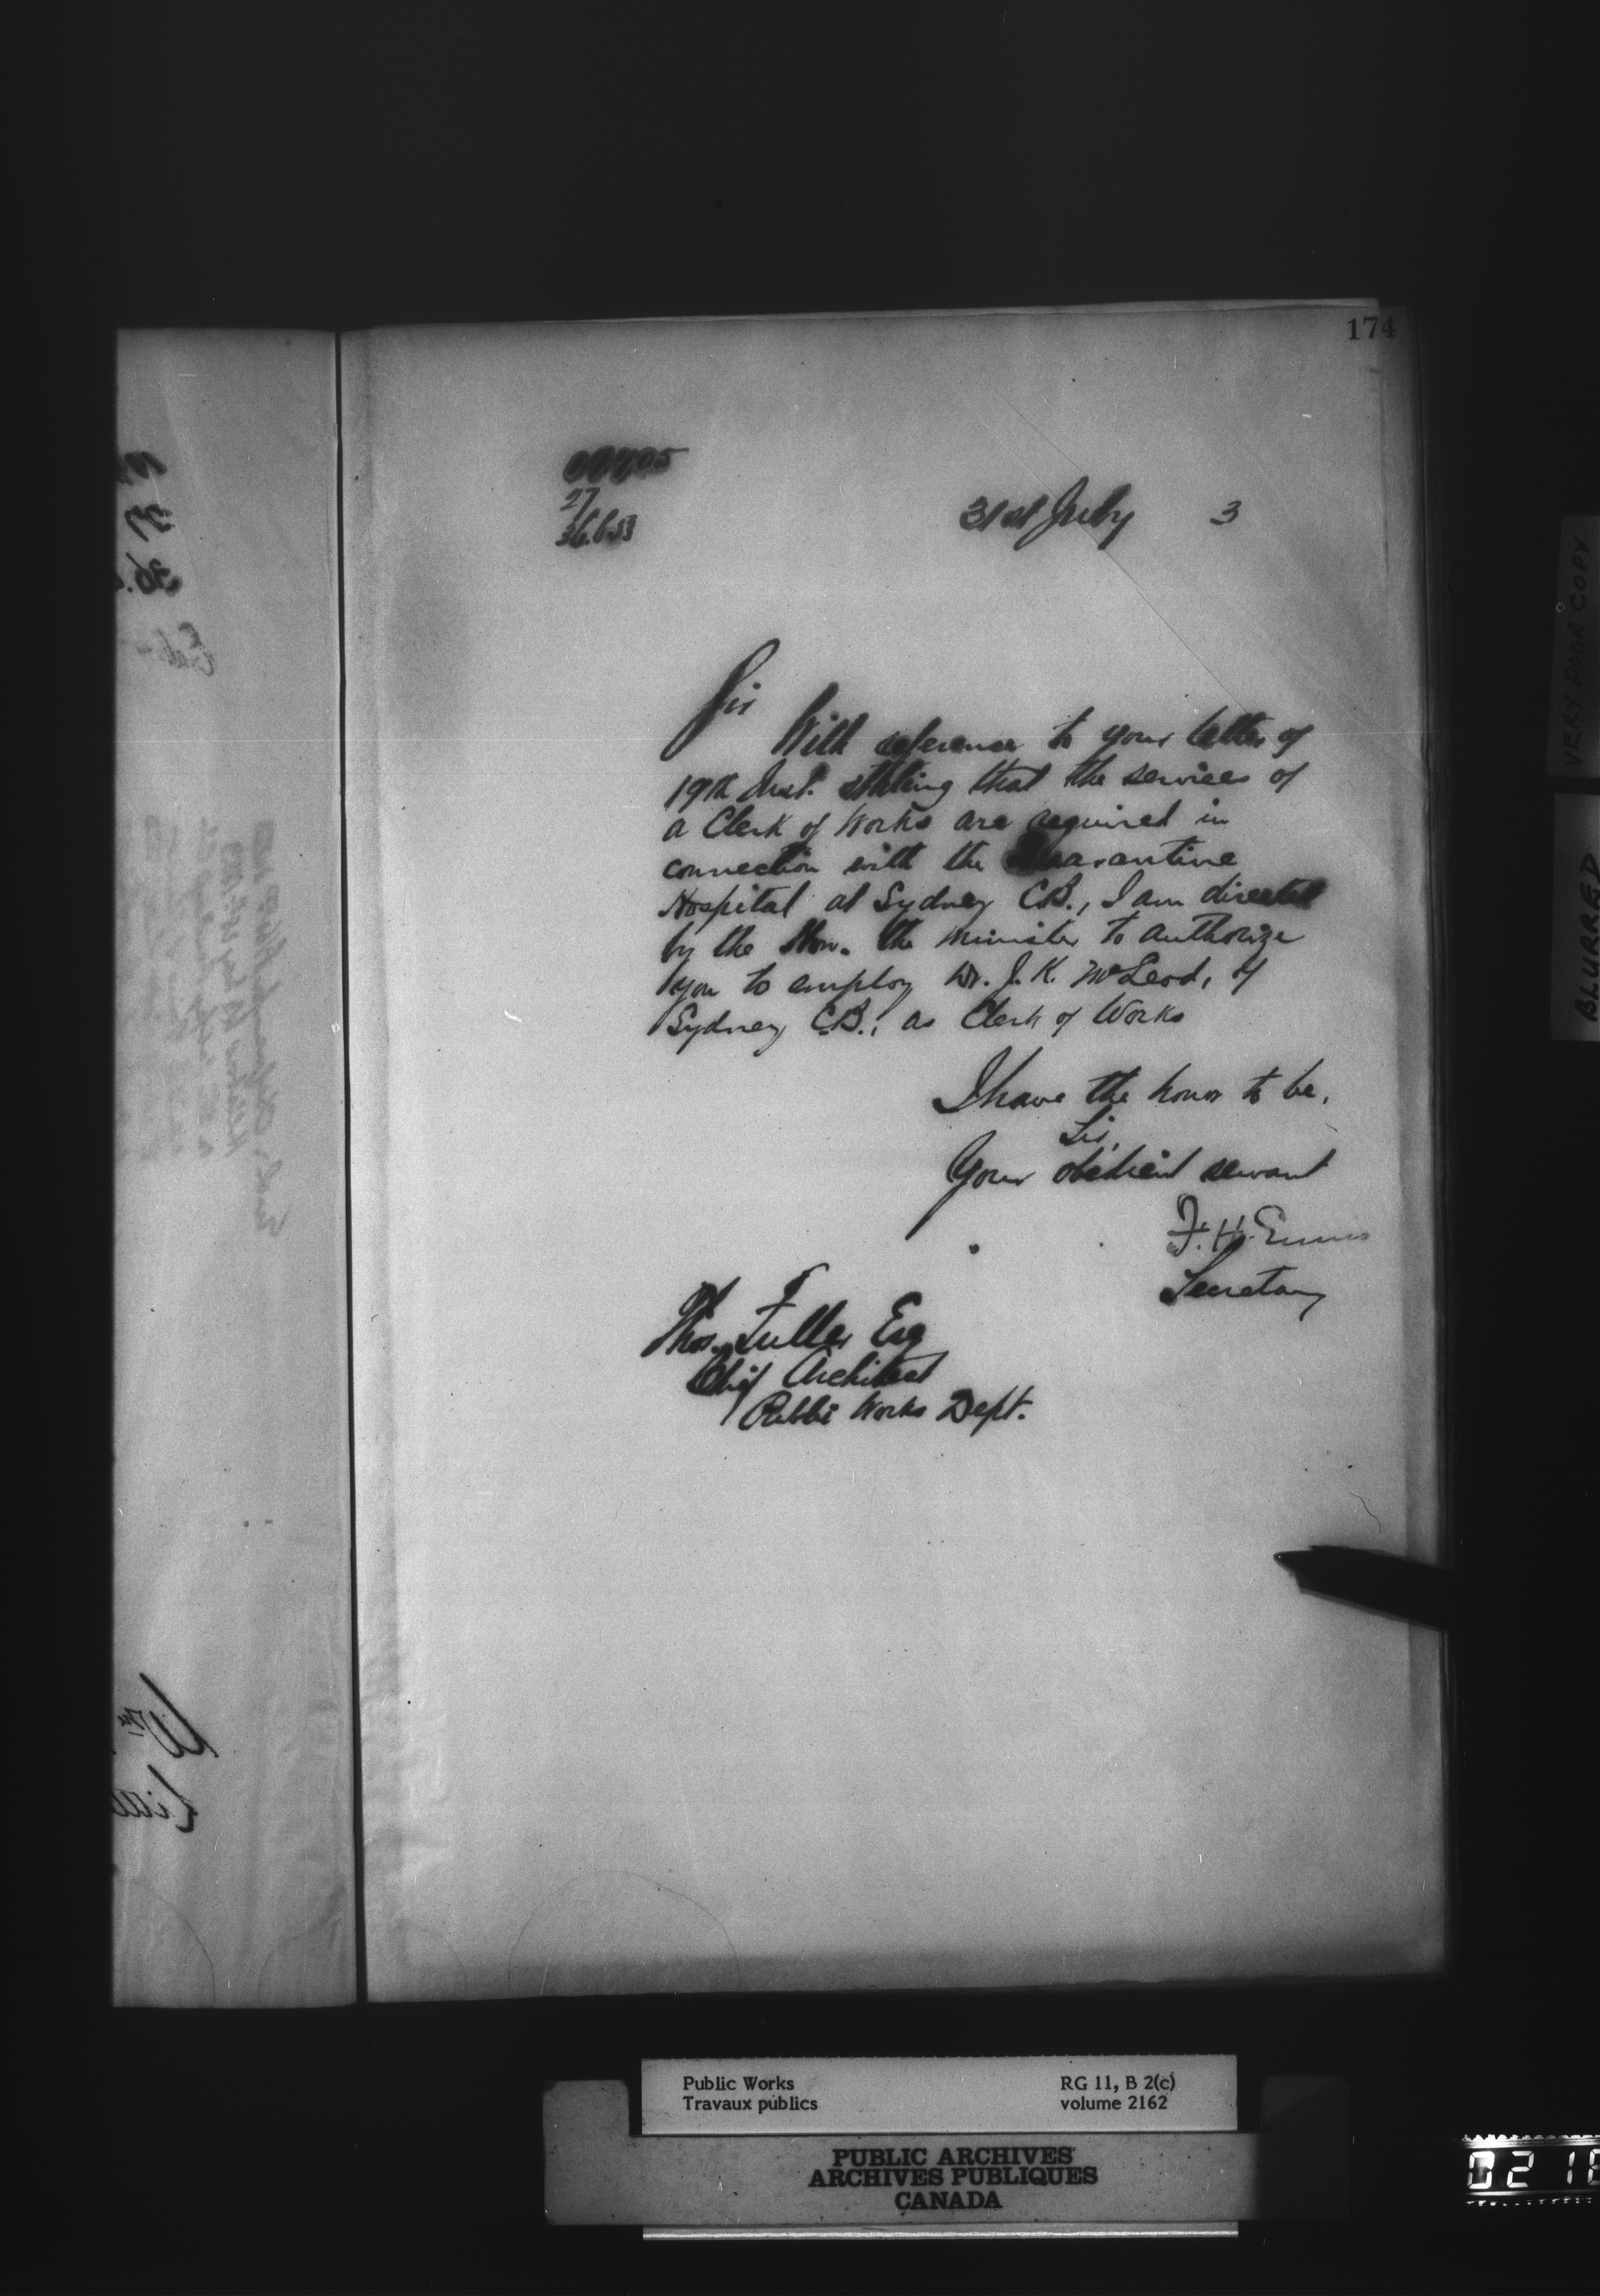 174
27
36.653
31st July 3
Sir
With reference to your letter of
19th Inst. stating that the services of
a Clerk of Works are required in
connection with the Quarantine
Hospital at Sydney C.B., I am directed
by the Hon. the Minister to authorize
you to employ Mr. J. K. McLeod, of
Sydney C.B., as Clerk of Works
I have the honor to be,
Sir,
Your obedient servant
F. H. Ennis
Secretary
Thos. Fuller Esq
Chief Architect
Public Works Dept.
VERY POOR COPY
BLURRED
Public Works RG 11, B 2(c)
Travaux publics volume 2162
PUBLIC ARCHIVES
ARCHIVES PUBLIQUES
CANADA